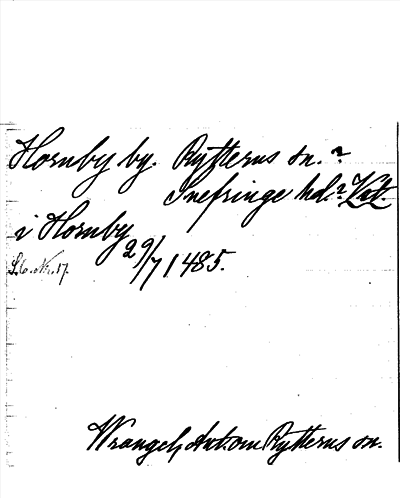 Hornby by. Rytterns sn.?
Snefringe hd.? Vstl.
i Hornby
29/7 1485.
Sko. Nr. 17.
Wrangel, Ant. om Rytterns sn.